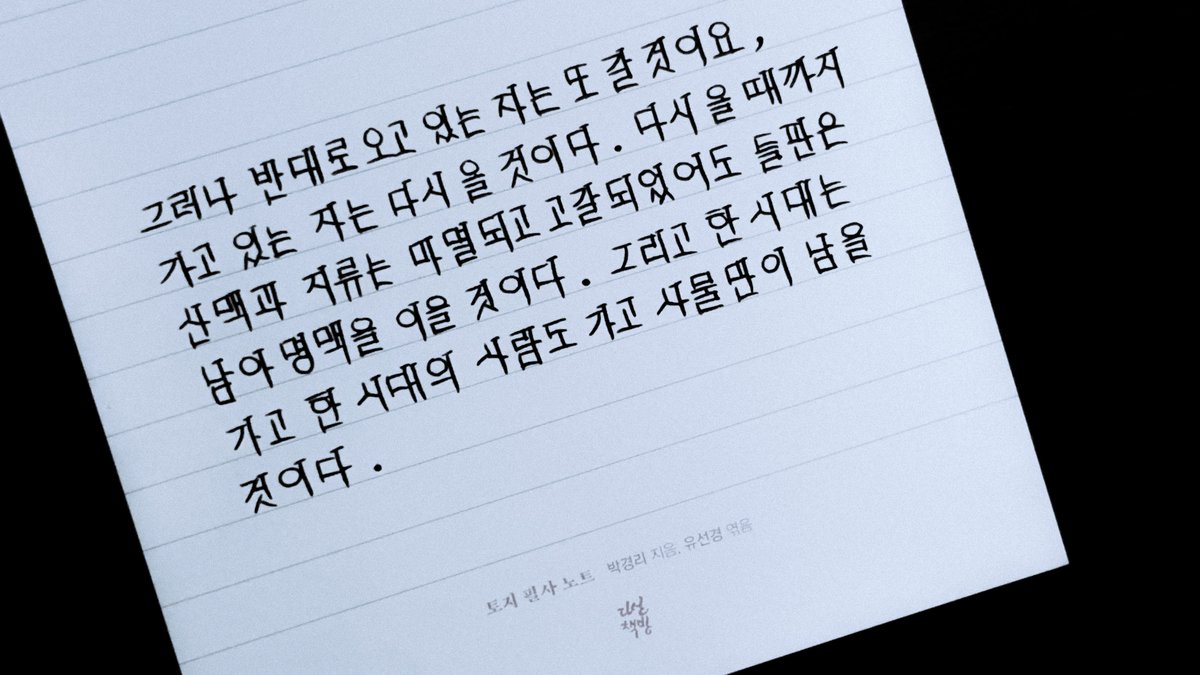 그러나 반대로 오고 있는 자는 또 갈 것이요,
가고 있는 자는 다시 올 것이다. 다시 올 때까지
산맥과 지류는 마멸되고 고갈되었어도 들판은
남아 명맥을 이을 것이다. 그리고 한 시대는
가고 한 시대의 사람도 가고 사물만이 남을
것이다.
토지 필사 노트 박경리 지음, 유선경 엮음
다산
책방